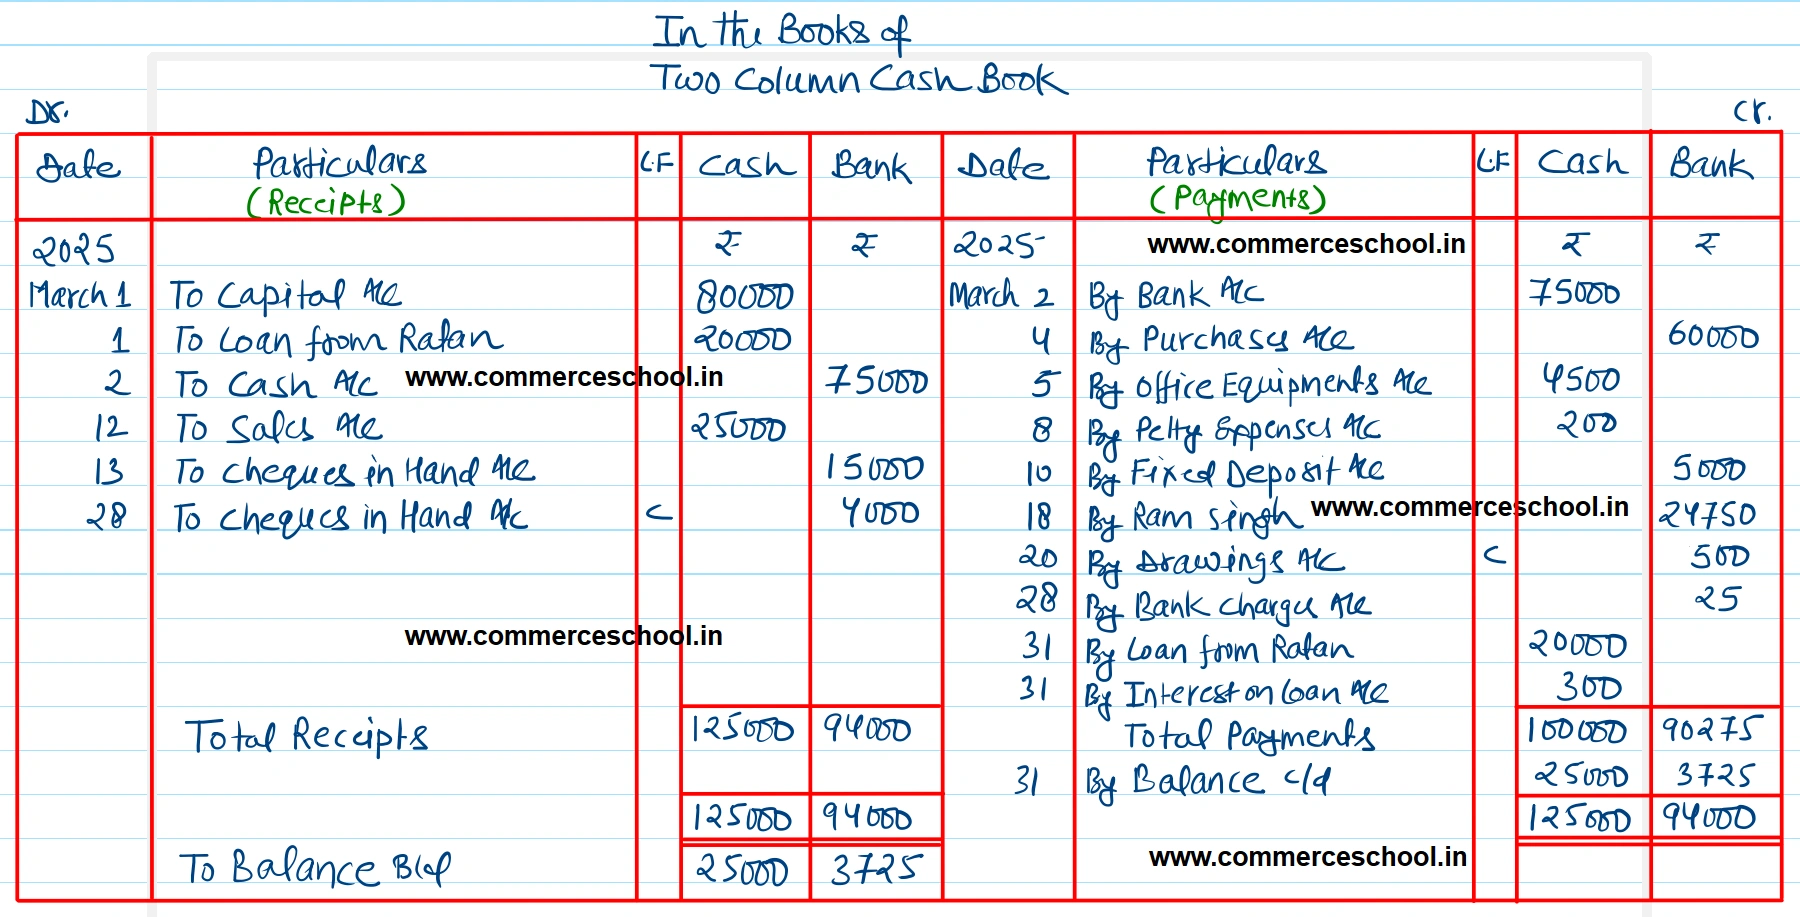 In the Books of
Two Column Cash Book
Dr. Cr.
Date Particulars L.F Cash Bank Date Particulars L.F Cash Bank
(Receipts) (Payments)
2025 ₹ ₹ 2025 www.commerceschool.in ₹ ₹
March 1 To Capital A/c 80000 March 2 By Bank A/c 75000
1 To Loan from Ratan 20000 4 By Purchases A/c 60000
2 To Cash A/c www.commerceschool.in 75000 5 By Office Equipments A/c 4500
12 To Sales A/c 25000 8 By Petty Expenses A/c 200
13 To Cheques in Hand A/c 15000 10 By Fixed Deposit A/c 5000
28 To Cheques in Hand A/c C 4000 18 By Ram Singh www.commerceschool.in 24750
20 By Drawings A/c C 500
28 By Bank Charges A/c 25
www.commerceschool.in 31 By Loan from Ratan 20000
31 By Interest on Loan A/c 300
Total Receipts 125000 94000 Total Payments 100000 90275
31 By Balance c/d 25000 3725
125000 94000 125000 94000
To Balance B/d 25000 3725 www.commerceschool.in